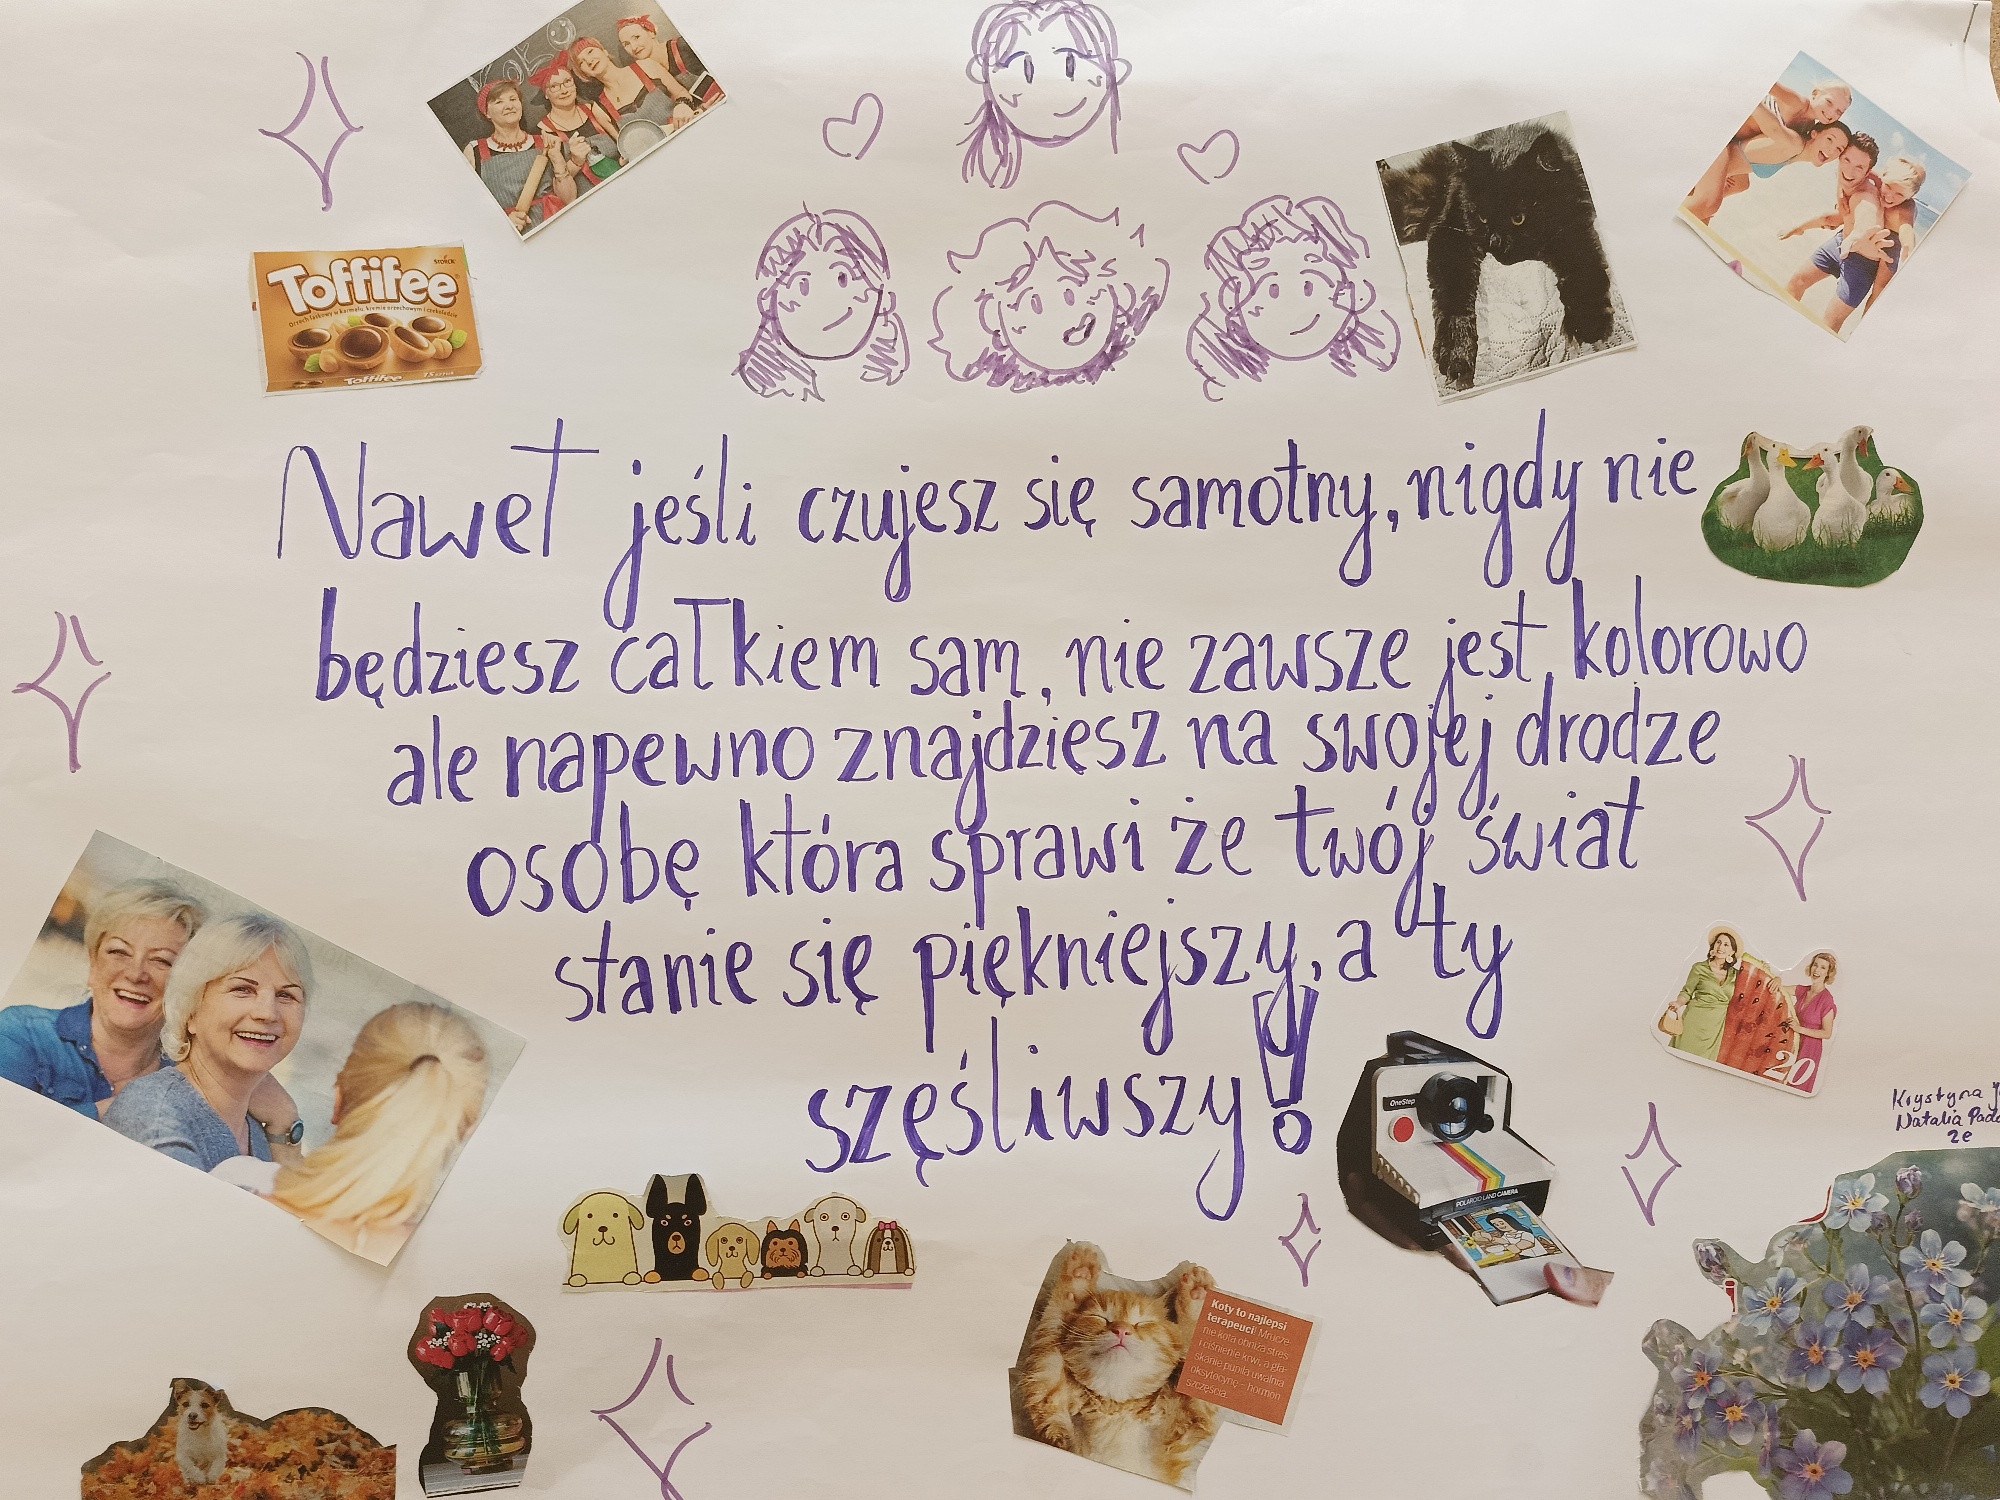 Toffifee
STORCK
Orzech laskowy w karmelu, kremie orzechowym i czekoladzie
Toffifee
Nawet jeśli czujesz się samotny, nigdy nie
będziesz całkiem sam, nie zawsze jest kolorowo
ale napewno znajdziesz na swojej drodze
osobę która sprawi że twój świat
stanie się piękniejszy, a ty
szęśliwszy!
20
OneStep
POLAROID LAND CAMERA
Krystyna
Natalia
2e
Koty to najlepsi
terapeuci! Mrucze-
nie kota obniża stres
i ciśnienie krwi, a gła-
skanie pupila uwalnia
oksytocynę – hormon
szczęścia.